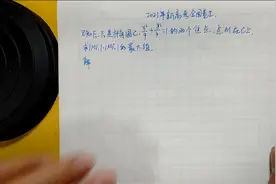 2021年新高考全国卷I.
已知F₁,F₂是椭圆C: x²/9+y²/4=1的两个焦点,点M在C上,
求|MF₁|·|MF₂|的最大值.
解